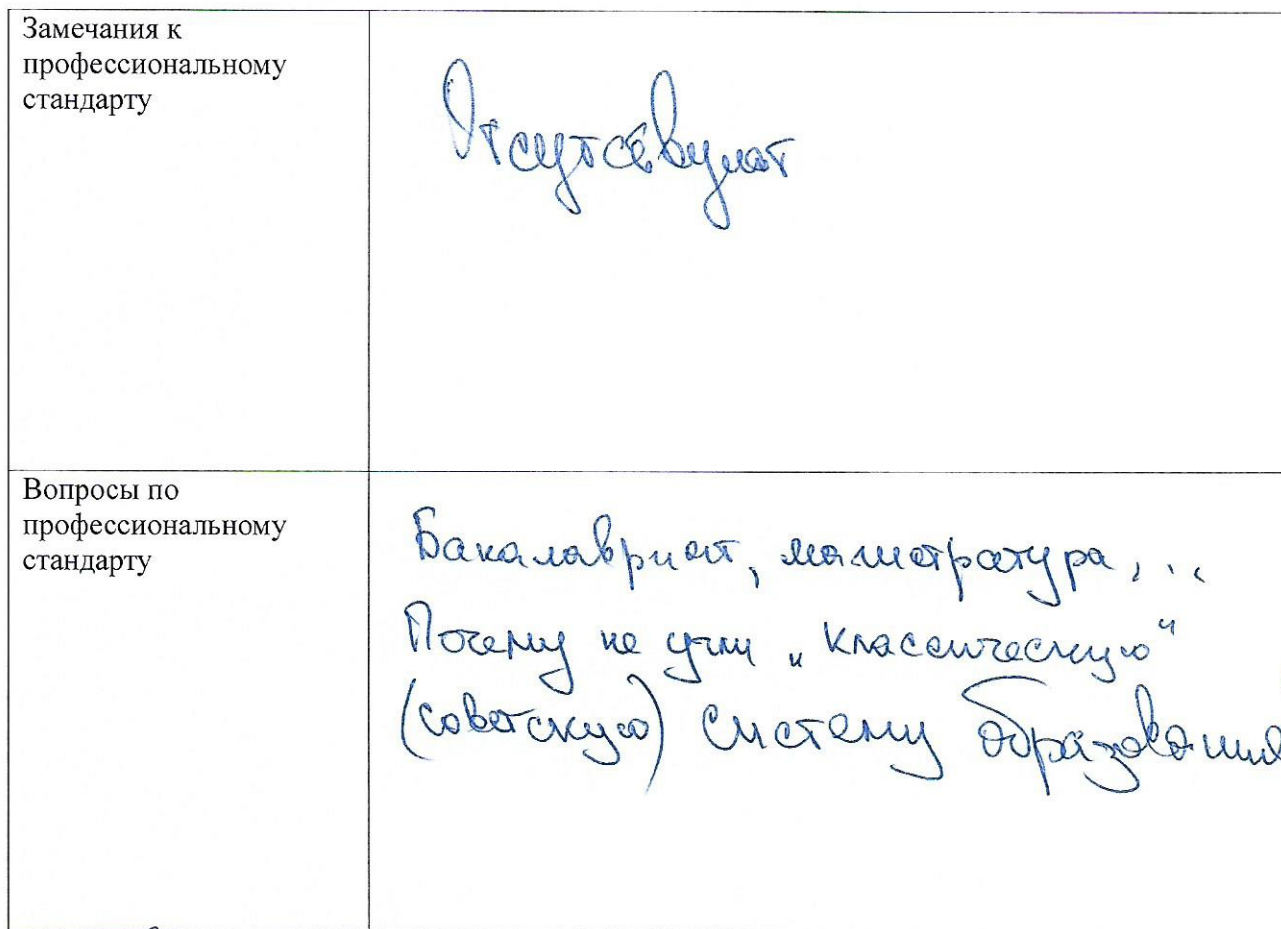 Замечания к
профессиональному
стандарту
Отсутсвуют
Вопросы по
профессиональному
стандарту
Бакалавриат, магистратура, ..
Почему не учли „классическую“
(советскую) систему образования